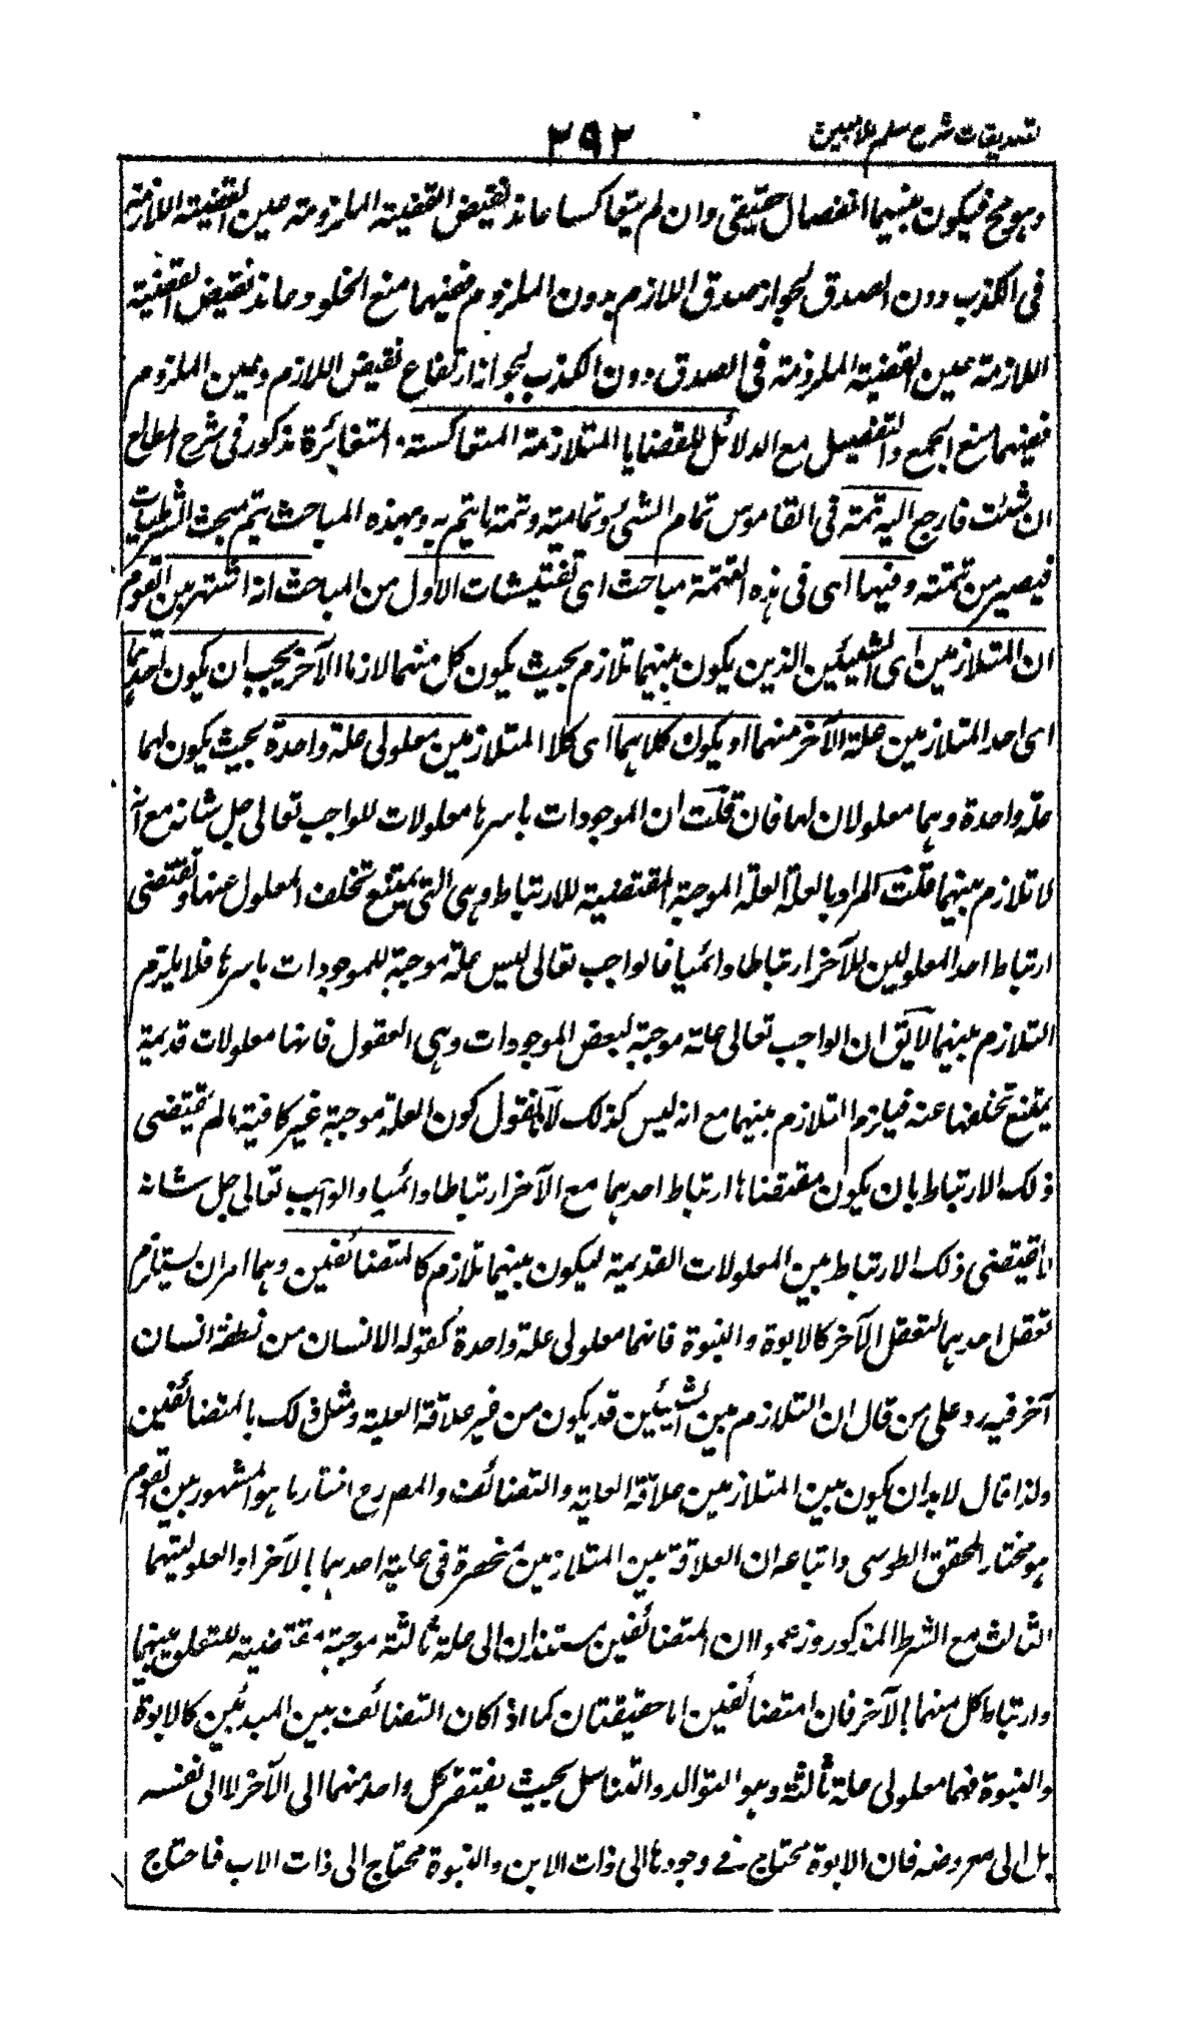 تصدیقات شرح سلم ملا مبین
٢٩٢
وہو مح فیکون بینہما انفصال حقیقی وان لم یتعاکسا عاند نقیض القضیۃ الملزومۃ عین القضیۃ اللازمۃ
فی الکذب دون الصدق لجواز صدق اللازم بدون الملزوم فبینہما منع الخلو وعاند نقیض القضیۃ
اللازمۃ عین القضیۃ الملزومۃ فی الصدق دون الکذب لجواز ارتفاع نقیض اللازم وعین الملزوم
فبینہما منع الجمع والتفصیل مع الدلائل للقضایا المتلازمۃ المتعاکستہ المتغائرۃ مذکور فی شرح المطالع
ان شئت فارجع الیہ تتمۃ فی القاموس تمام الشیٔ وتمامیتہ وتتمۃ ما یتم بہ وبہذہ المباحث یتم مبحث الشرطیات
فیصیر من تتمتہ وفیہا ای فی ہذہ التتمۃ مباحث ای تفتیشات الاول من المباحث انہ اشتہر بین القوم
ان المتلازمین ای الشیئین الذین یکون بینہما تلازم بحیث یکون کل منہما لازما للآخر یجب ان یکون احدہما
ای احد المتلازمین علۃ الآخر منہما او یکون کلاہما ای کلا المتلازمین معلولی علۃ واحدۃ بحیث یکون لہما
علۃ واحدۃ وہما معلولان لہا فان قلت ان الموجودات باسرہا معلولات للواجب تعالی جل شانہ مع انہ
لا تلازم بینہما قلت المراد بالعلۃ العلۃ الموجبۃ المقتضیۃ للارتباط وہی التی یمتنع تخلف المعلول عنہا وتقتضی
ارتباط احد المعلولین للآخر ارتباطا دائمیا فالواجب تعالی لیس علۃ موجبۃ للموجودات باسرہا فلا یلزم
التلازم بینہما لا یق ان الواجب تعالی علۃ موجبۃ لبعض الموجودات وہی العقول فانہا معلولات قدیمۃ
یمتنع تخلفہا عنہ فیلزم التلازم بینہما مع انہ لیس کذلک لانا نقول کون العلۃ موجبۃ غیر کافیۃ ما لم یقتضی
ذلک الارتباط بان یکون مقتضاہا ارتباط احدہما مع الآخر ارتباطا دائمیا والواجب تعالی جل شانہ
ما یقتضی ذلک الارتباط بین المعلولات القدیمۃ لیکون بینہما تلازم کالمتضائفین وہما امران یستلزم
تعقل احدہما لتعقل الآخر کالابوۃ والبنوۃ فانہما معلولی علۃ واحدۃ کقولہ الانسان من نطفۃ انسان
آخر فیہ رد علی من قال ان التلازم بین الشیئین قد یکون من غیر علاقۃ العلیۃ ومثل ذلک بالمتضائفین
ولذا قال لا بد ان یکون بین المتلازمین علاقۃ العلیۃ والتضائف والمصرح اختار ما ہو المشہور بین القوم
ہو مختار المحقق الطوسی واتباعہ ان العلاقۃ بین المتلازمین منحصرۃ فی علیۃ احدہما بالآخر او المعلولیتہما
الثالث مع الشرط المذکور وزعموا ان المتضائفین یستندان الی علۃ ثالثۃ موجبۃ مقتضیۃ للتعلق بینہما
وارتباط کل منہما بالآخر فان المتضائفین اما حقیقتان کما اذا کان التضائف بین المبدئین کالابوۃ
والبنوۃ فہما معلولی علۃ ثالثۃ وہو التوالد والتناسل بحیث یفتقر کل واحد منہما الی الآخر لا الی نفسہ
بل الی معروضہ فان الابوۃ محتاج فی وجودہا الی ذات الابن والبنوۃ محتاج الی ذات الاب فاحتاج